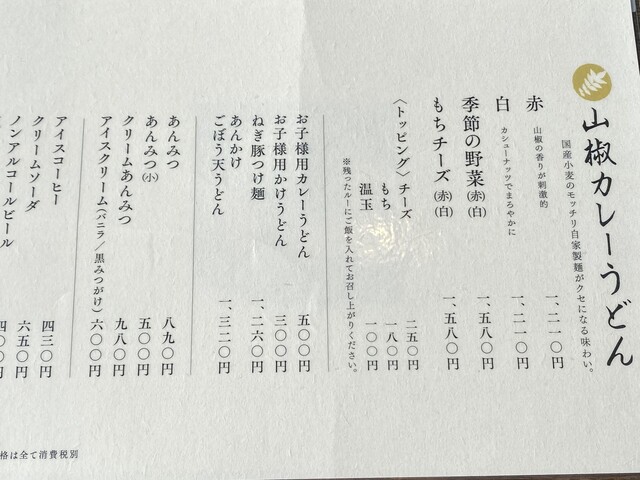 山椒カレーうどん
国産小麦のモッチリ自家製麺がクセになる味わい。
赤 山椒の香りが刺激的 一、二一〇円
白 カシューナッツでまろやかに 一、二一〇円
季節の野菜(赤)(白) 一、五八〇円
もちチーズ(赤)(白) 一、五八〇円
〈トッピング〉チーズ 二五〇円
もち 一八〇円
温玉 一〇〇円
※残ったルーにご飯を入れてお召し上がりください。
お子様用カレーうどん 五〇〇円
お子様用かけうどん 三〇〇円
ねぎ豚つけ麺 一、二六〇円
あんかけ
ごぼう天うどん 一、三二〇円
あんみつ 八九〇円
あんみつ(小) 五〇〇円
クリームあんみつ 九八〇円
アイスクリーム(バニラ/黒みつがけ) 六〇〇円
アイスコーヒー 四三〇円
クリームソーダ 六五〇円
ノンアルコールビール
格は全て消費税別